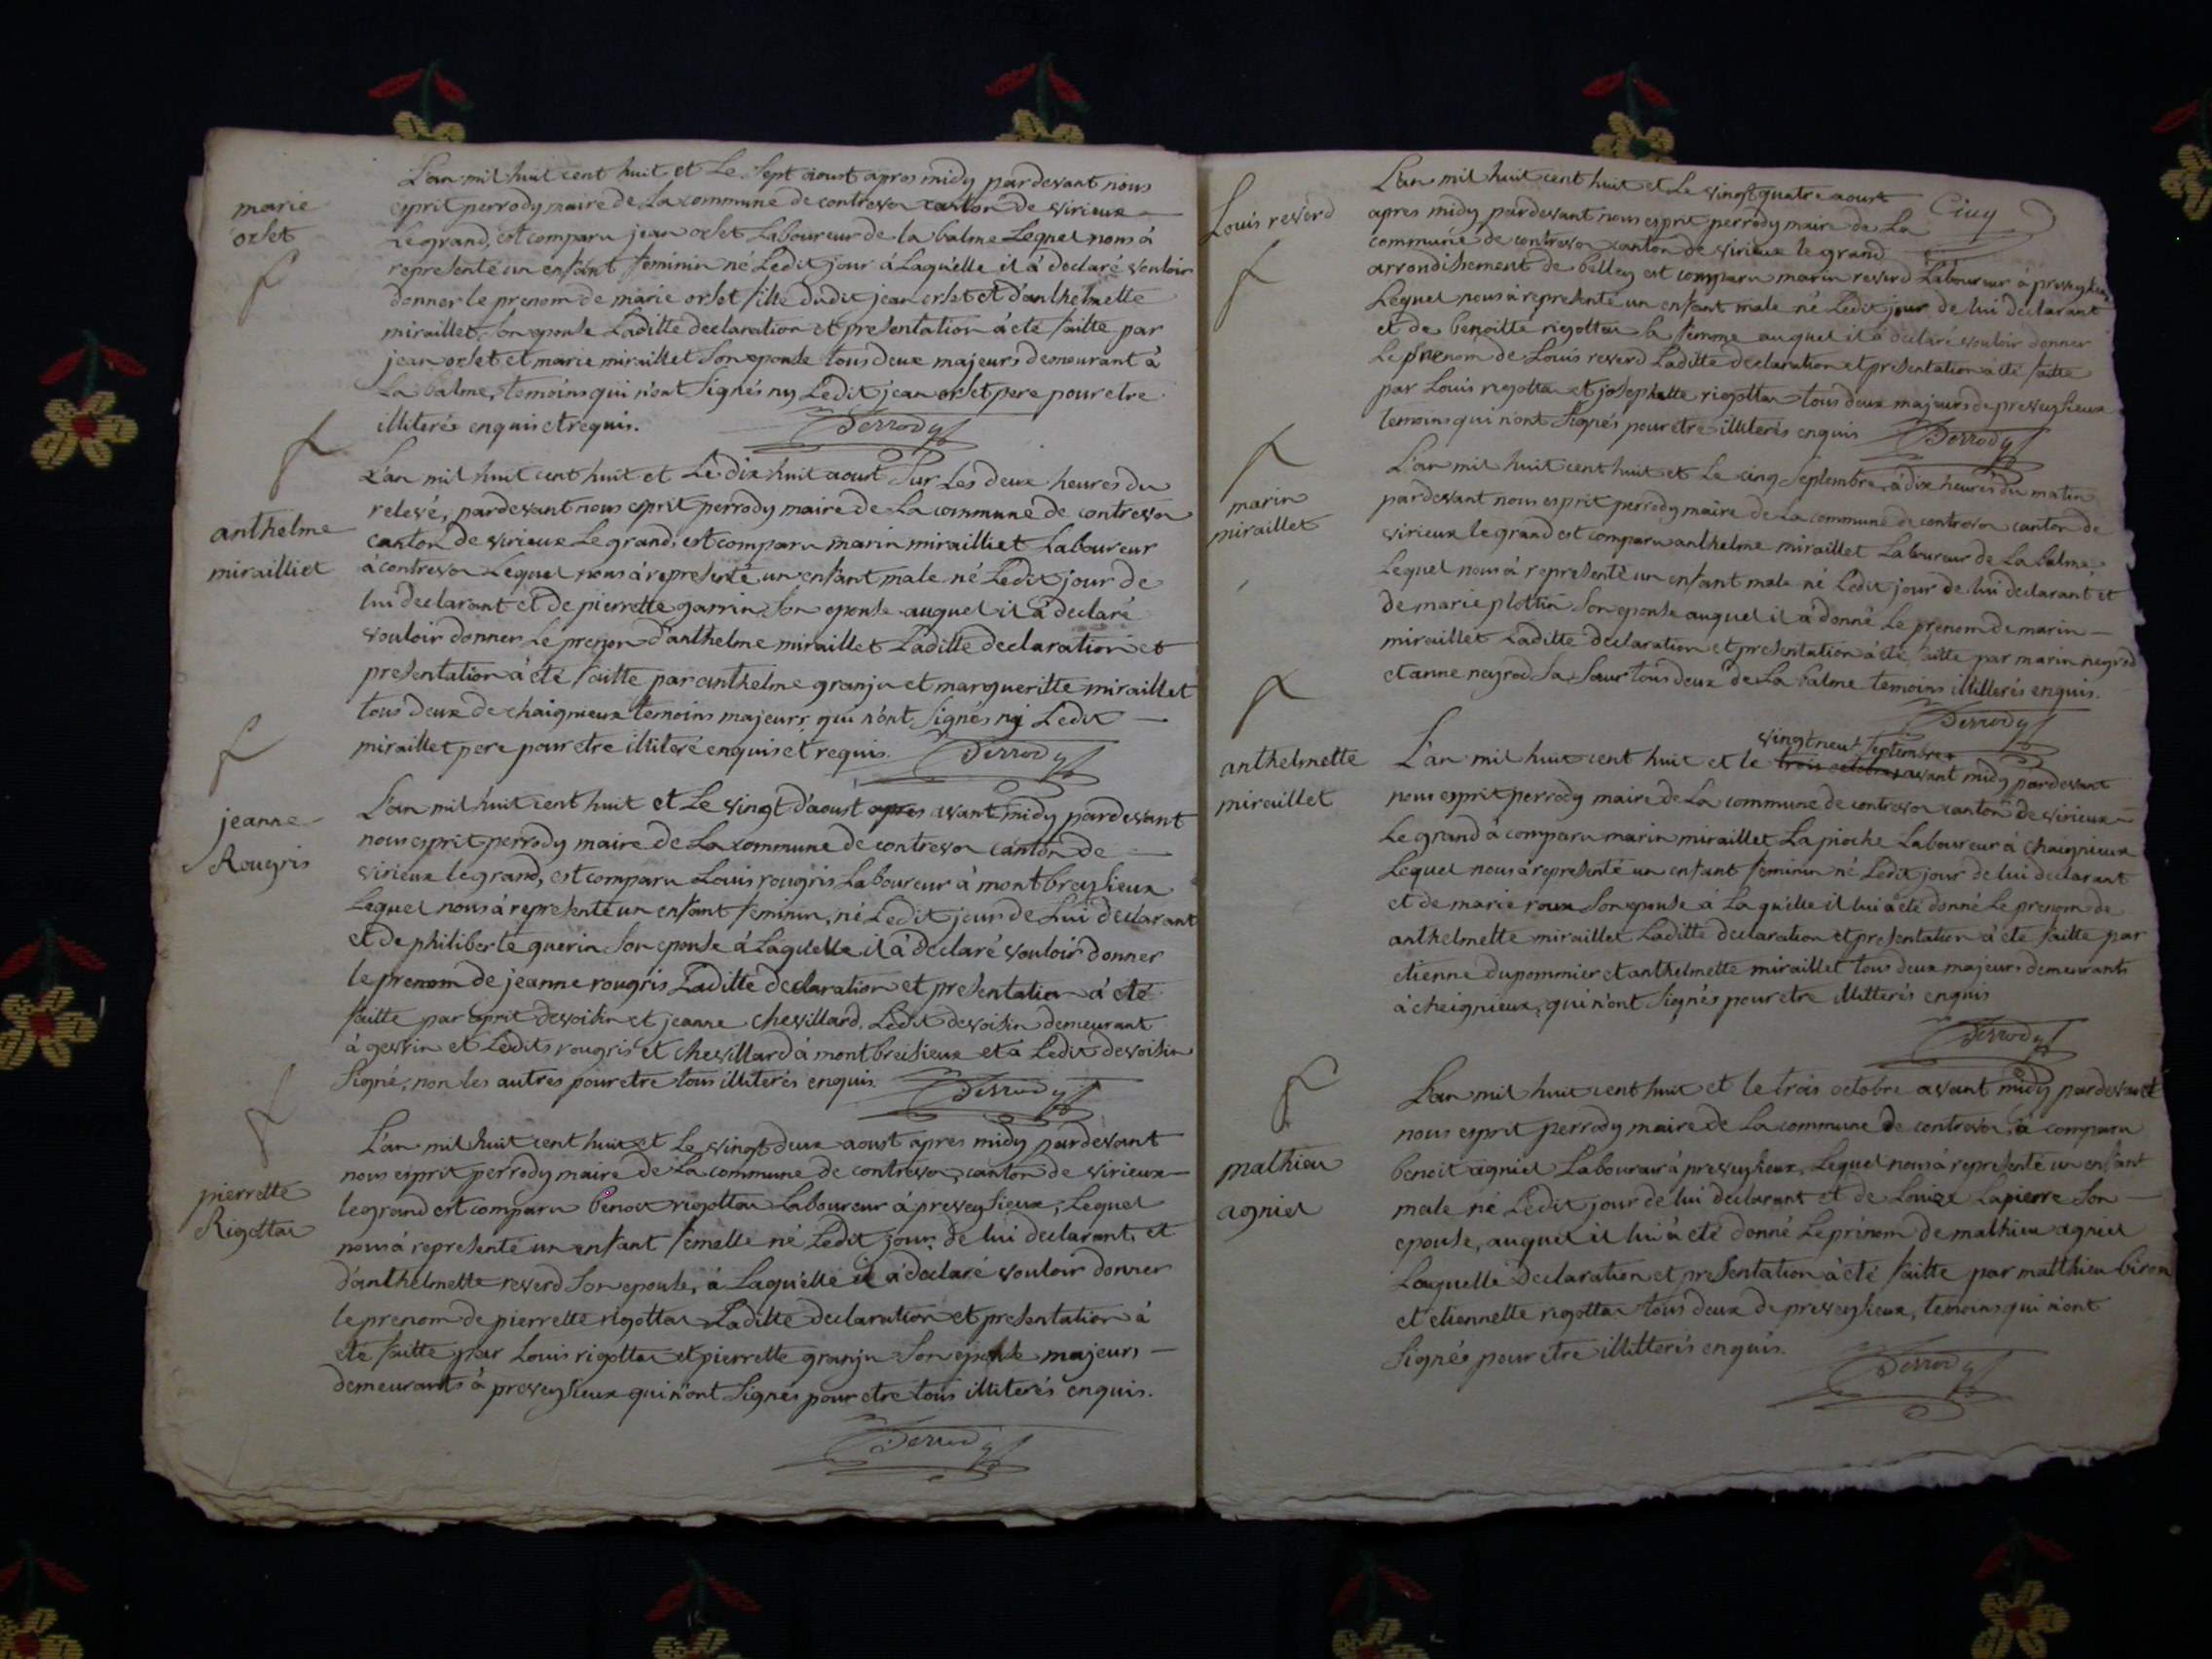 marie
orset
L'an mil huit cent huit et Le sept aoust apres midy pardevant nous
esprit perrody maire de La commune de contrevoz canton de virieux
Le grand, est comparu jean orset Laboureur de la balme Lequel nous à
representé un enfant feminin né Ledit jour à Laquelle il à declaré vouloir
donner le prenom de marie orset fille dudit jean orset et d'anthelmette
miraillet, son epouse Laditte declaration et presentation à eté faitte par
jean orset et marie miraillet son epouse tous deux majeurs demeurant à
La balme, temoins qui n'ont signés ny Ledit jean orset pere pour etre
illiterés enquis et requis. Perrody
anthelme
mirailliet
L'an mil huit cent huit et Le dix huit aoust sur Les deux heures du
relevé, pardevant nous esprit perrody maire de La commune de contrevoz
canton de virieux Le grand, est comparu marin mirailliet Laboureur
à contrevoz Lequel nous à representé un enfant male né Ledit jour de
lui declarant et de pierrette garrin son epouse auquel il à declaré
vouloir donner Le prenom d'anthelme miraillet Laditte declaration et
presentation à eté faitte par anthelme granju et margueritte miraillet
tous deux de chaignieux temoins majeurs qui n'ont signés ny Ledit
miraillet pere pour etre illiteré enquis et requis. Perrody
jeanne
Rougris
L'an mil huit cent huit et Le vingt d'aoust apres avant midy pardevant
nous esprit perrody maire de La commune de contrevoz canton de
virieux le grand, est comparu Louis rougris Laboureur à montbreysieux
Lequel nous à representé un enfant feminin, né Ledit jour de Lui declarant
et de philiberte guerin son epouse à Laquelle il à declaré vouloir donner
le prenom de jeanne rougris Laditte declaration et presentation à eté
faitte par esprit devoisin et jeanne chevillard, Ledit devoisin demeurant
à gevrin et Ledits rougris et chevillard à montbreisieux et à Ledit devoisin
signé, non les autres pour etre tous illiterés enquis. Perrody
pierrette
Rigottaz
L'an mil huit cent huit et Le vingt deux aoust apres midy pardevant
nous esprit perrody maire de La commune de contrevoz, canton de virieux
le grand est comparu benoit rigottaz Laboureur à preveysieux, Lequel
nous à representé un enfant femelle né Ledit jour de lui declarant, et
d'anthelmette reverd son epouse, à Laquelle il à declaré vouloir donner
le prenom de pierrette rigottaz Laditte declaration et presentation à
eté faitte par Louis rigottaz et pierrette granju son epouse majeurs
demeurants à preveysieux qui n'ont signés pour etre tous illiterés enquis.
Perrody
Louis reverd
L'an mil huit cent huit et Le vingt quatre aoust
apres midy pardevant nous esprit perrody maire de La
commune de contrevoz canton de virieux le grand
arrondissement de belley est comparu marin reverd Laboureur à preveysieux
Lequel nous à representé un enfant male né Ledit jour de lui declarant
et de benoitte rigottaz sa femme auquel il à declaré vouloir donner
Le prenom de Louis reverd Laditte declaration et presentation à eté faitte
par Louis rigottaz et josephatte rigottaz tous deux majeurs de preveysieux
temoins qui n'ont signés pour etre illiterés enquis Perrody
marin
miraillet
L'an mil huit cent huit et Le cinq septembre, à dix heures du matin
pardevant nous esprit perrody maire de La commune de contrevoz canton de
virieux le grand est comparu anthelme miraillet Laboureur de La balme,
Lequel nous à representé un enfant male né Ledit jour de lui declarant et
de marie plottin son epouse auquel il à donné Le prenom de marin
miraillet Laditte declaration et presentation à eté faitte par marin neyrod
et anne neyrod sa sœur tous deux de La balme temoins illitterés enquis.
Perrody
anthelmette
miraillet
vingt neuf septembre
L'an mil huit cent huit et le trois octobre avant midy pardevant
nous esprit perrody maire de La commune de contrevoz canton de virieux
Le grand à comparu marin miraillet La pioche Laboureur à chaignieux
Lequel nous à representé un enfant feminin né Ledit jour de lui declarant
et de marie roux son epouse à Laquelle il lui à eté donné Le prenom de
anthelmette miraillet Laditte declaration et presentation à eté faitte par
etienne dupommier et anthelmette miraillet tous deux majeurs demeurants
à cheignieux, qui n'ont signés pour etre illitterés enquis
Perrody
mathieu
agniel
L'an mil huit cent huit et le trois octobre avant midy pardevant
nous esprit perrody maire de La commune de contrevoz, à comparu
benoit agniel Laboureur à preveysieux, Lequel nous à representé un enfant
male né Ledit jour de lui declarant et de Louise Lapierre son
epouse, auquel il lui à eté donné Le prénom de mathieu agniel
Laquelle declaration et presentation à eté faitte par matthieu biron
et etiennette rigottaz tous deux de preveysieux, temoins qui n'ont
signés pour etre illitterés enquis.
Perrody